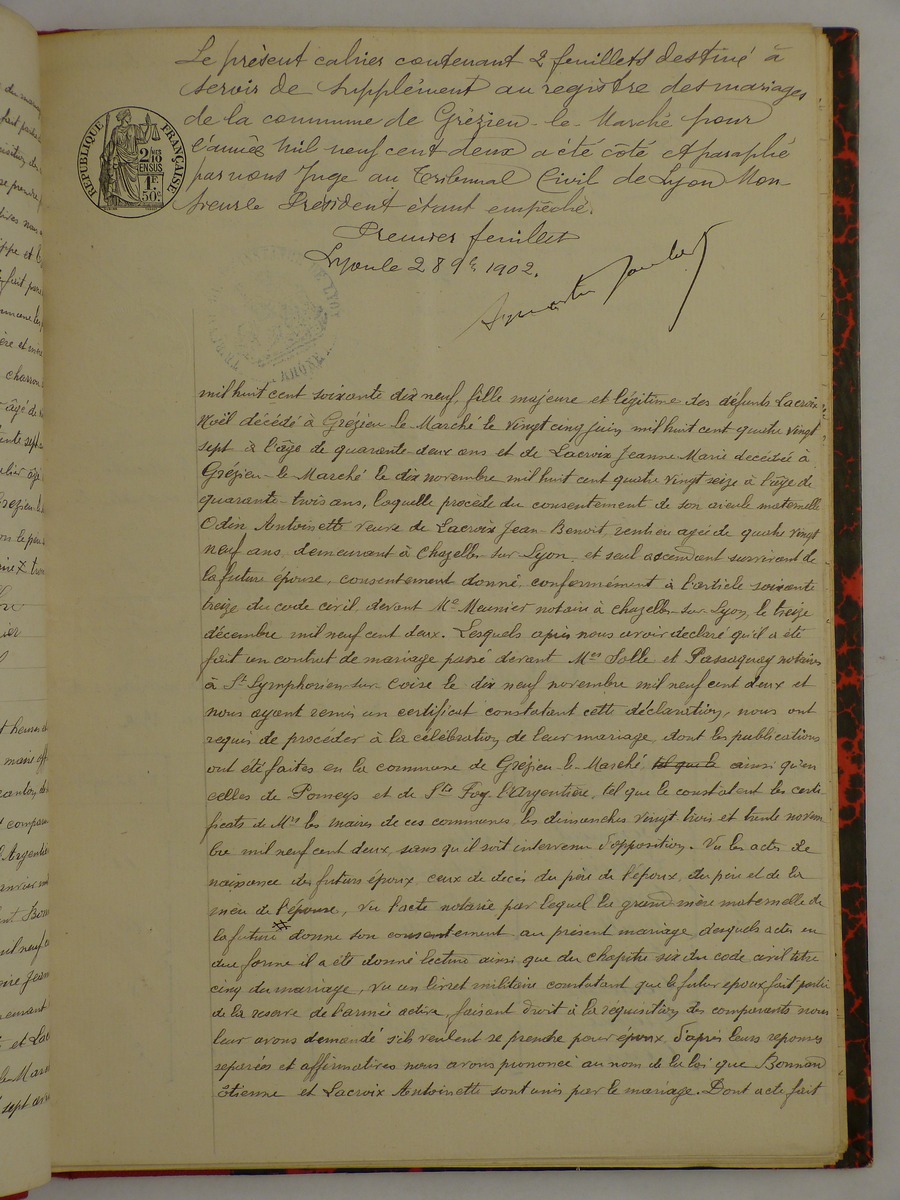 Le présent cahier contenant 2 feuillets destiné à
servir de supplément au registre des mariages
de la commune de Grézieu-le-Marché pour
l'année Mil neuf cent deux a été coté et paraphé
par nous Juge au Tribunal Civil de Lyon Mon
sieur le Président étant empêché.
Premier feuillet
Lyon le 28 9bre 1902.
RÉPUBLIQUE FRANÇAISE
2 DES 10
EN SUS
1F
50c
RHÔNE
mil huit cent soixante dix neuf, fille majeure et légitime des défunts Lacroix
Noël décédé à Grézieu le Marché le vingt cinq juin mil huit cent quatre vingt
sept à l'âge de quarante-deux ans et de Lacroix Jeanne Marie décédée à
Grézieu-le-Marché le dix novembre mil huit cent quatre vingt seize à l'âge de
quarante-trois ans, laquelle procède du consentement de son aieule maternelle
Odin Antoinette veuve de Lacroix Jean-Benoit, rentière agée de quatre vingt
neuf ans, demeurant à Chazelles-sur-Lyon, et seul ascendant survivant de
la future épouse, consentement donné conformément à l'article soixante
treize du code civil, devant Me Meunier notaire à Chazelles-sur-Lyon, le treize
décembre mil neuf cent deux. Lesquels après nous avoir déclaré qu'il a été
fait un contrat de mariage passé devant Mes Solle et Passaquay notaires
à St Symphorien-sur-Coise le dix neuf novembre mil neuf cent deux et
nous ayant remis un certificat constatant cette déclaration, nous ont
requis de procéder à la célébration de leur mariage, dont les publications
ont été faites en la commune de Grézieu-le-Marché tel que le ainsi qu'en
celles de Pomeys et de Ste Foy l'Argentière, tel que le constatent les certi
ficats de Mrs les maires de ces communes, les dimanches vingt trois et trente novem
bre mil neuf cent deux, sans qu'il soit intervenu d'opposition. Vu les actes de
naissance des futurs époux, ceux de décès du père de l'époux, du père et de la
mère de l'épouse, Vu l'acte notarié par lequel la grand mère maternelle de
la future donne son consentement au présent mariage, desquels actes en
due forme il a été donné lecture ainsi que du chapitre six du code civil titre
cinq du mariage, Vu un livret militaire constatant que le futur époux fait partie
de la réserve de l'armée active, faisant droit à la réquisition des comparants nous
leur avons demandé s'ils veulent se prendre pour époux. D'après leurs réponses
séparées et affirmatives nous avons prononcé au nom de la loi que Bonnand
Etienne et Lacroix Antoinette sont unis par le mariage. Dont acte fait